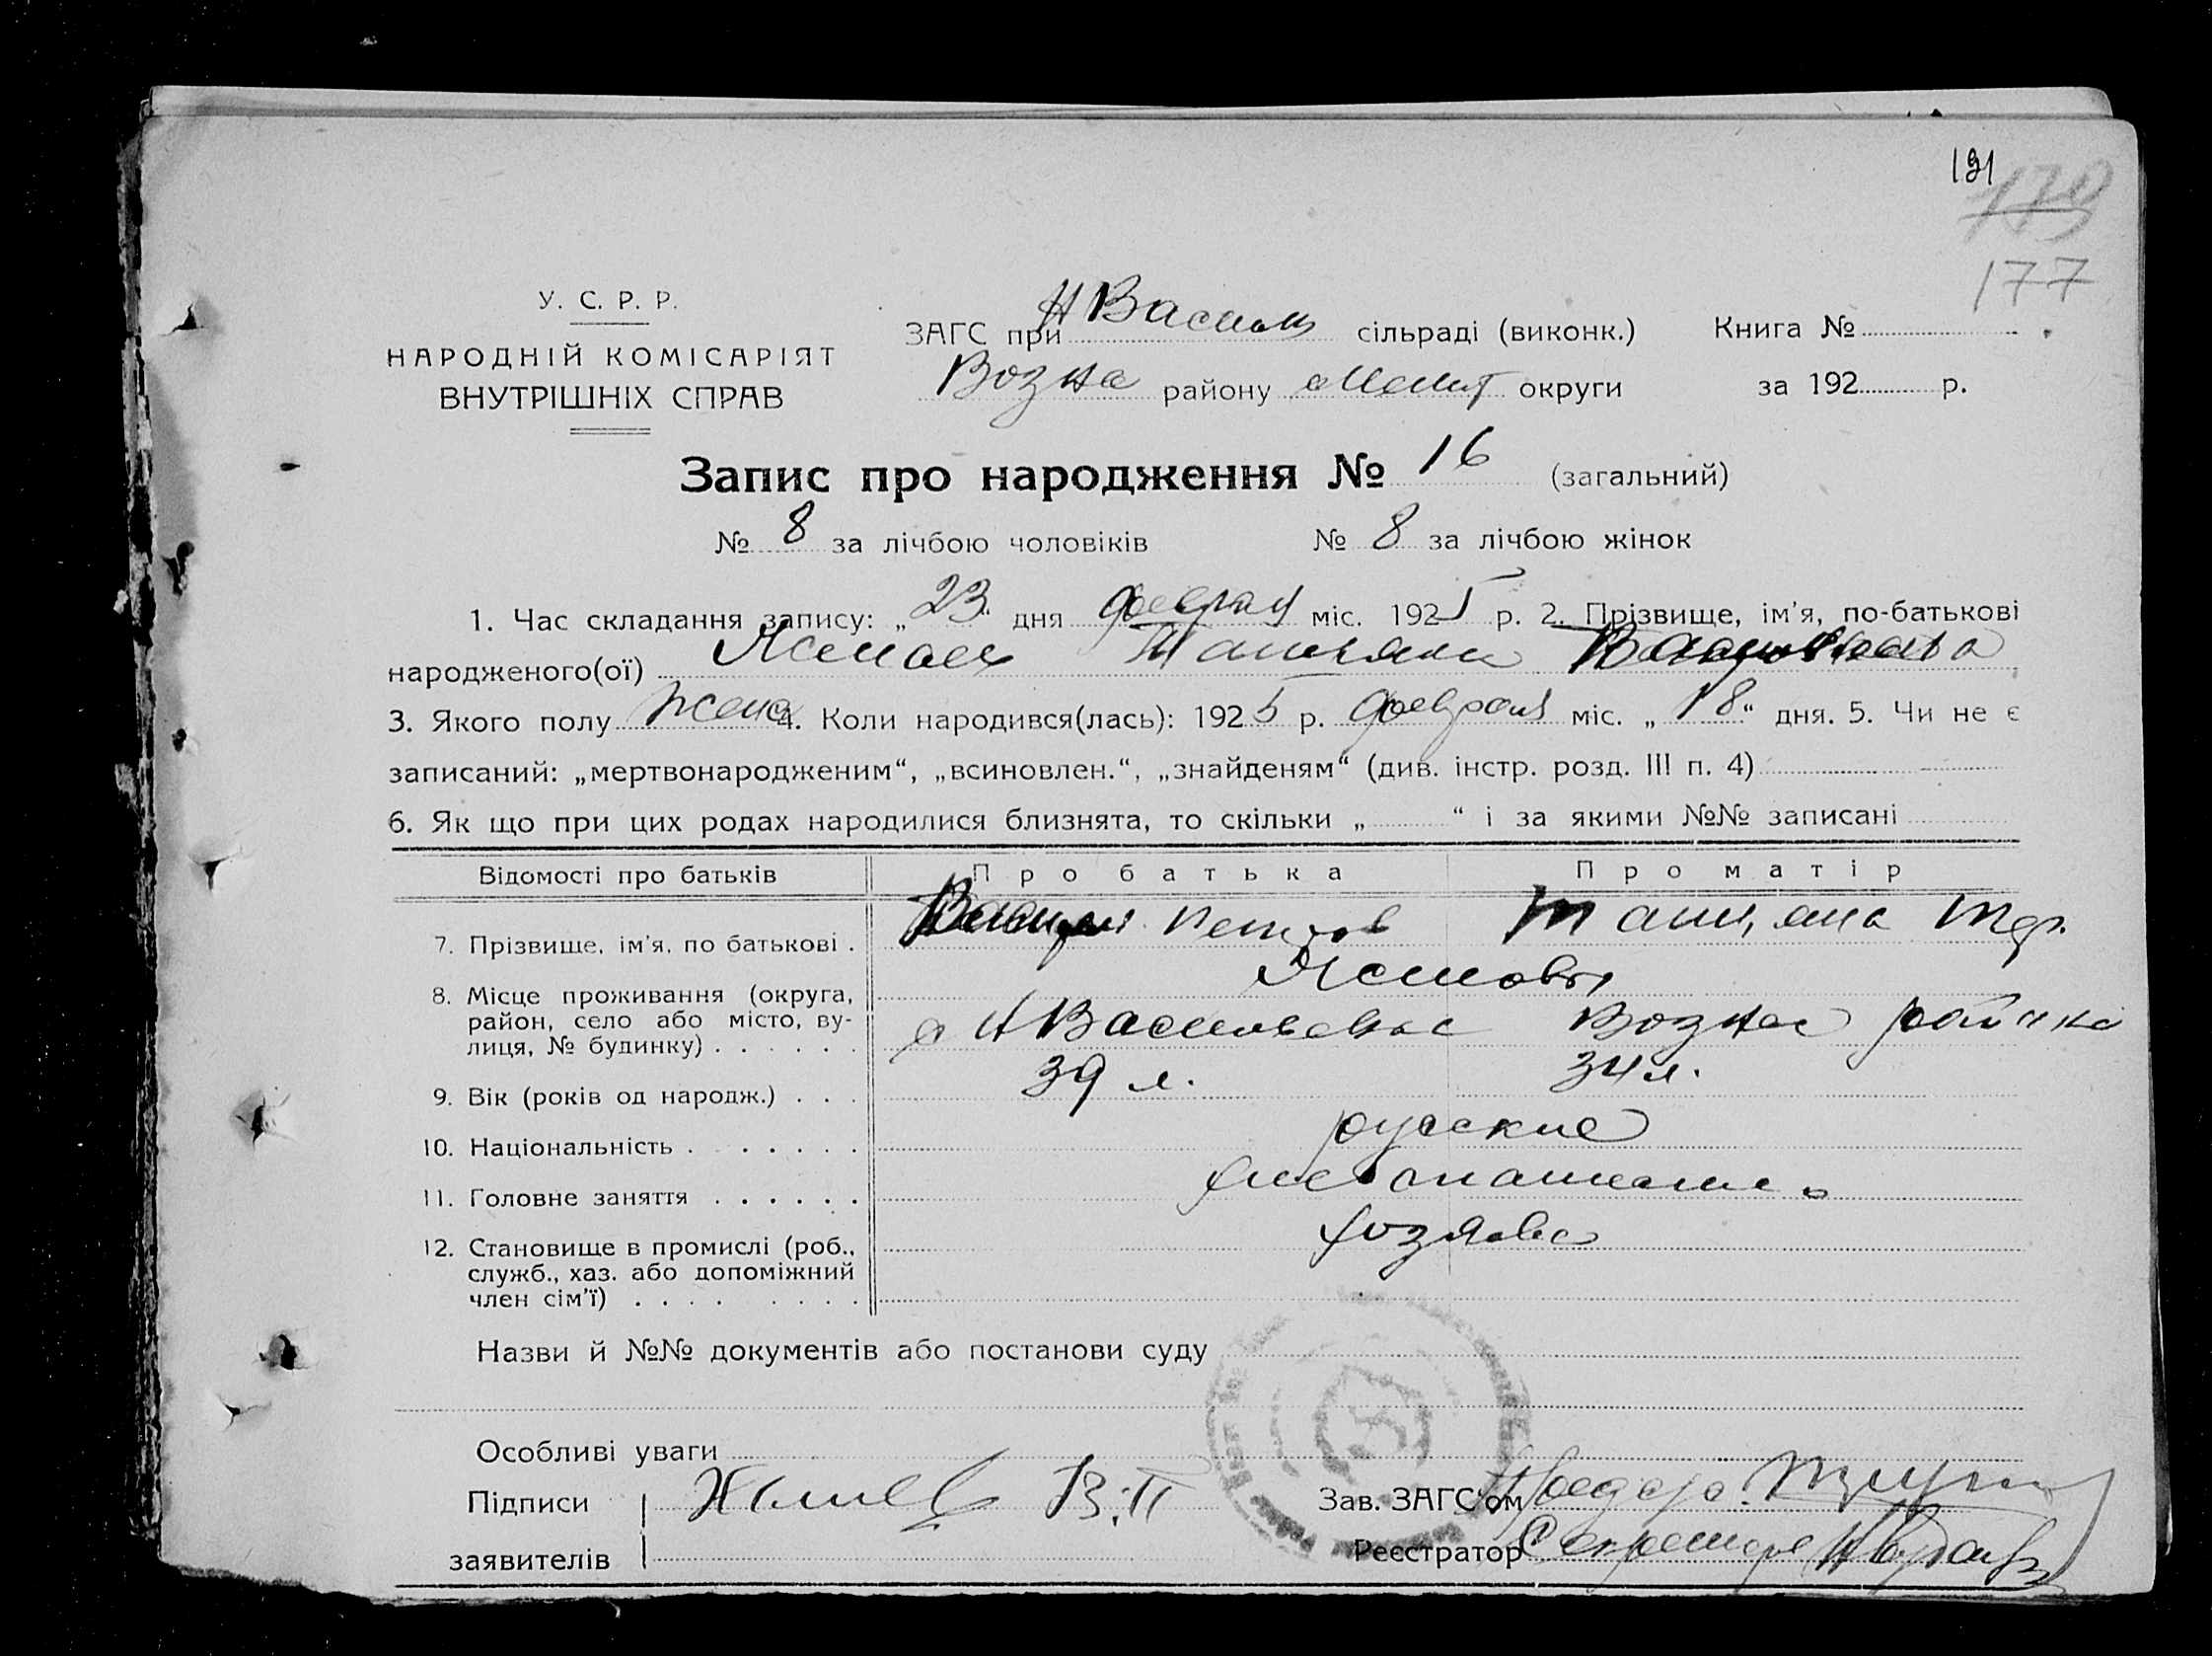 191
170
177
У. С. Р. Р.
НАРОДНІЙ КОМІСАРІЯТ
ВНУТРІШНІХ СПРАВ
ЗАГС при Н Васил сільраді (виконк.) Книга №
Возна району Мелит округи за 192 р.
Запис про народження № 16 (загальний)
№ 8 за лічбою чоловіків № 8 за лічбою жінок
1. Час складання запису: „23" дня февраля міс. 1925 р. 2. Прізвище, ім'я, по-батькові
народженого(ої)
3. Якого полу жена 4. Коли народився(лась): 1925 р. февраля міс. „18" дня. 5. Чи не є
записаний: „мертвонародженим", „всиновлен.", „знайденям" (див. інстр. розд. III п. 4)
6. Як що при цих родах народилися близнята, то скільки „ " і за якими №№ записані
Відомості про батьків Про батька Про матір
7. Прізвище, ім'я, по батькові . Петров Татияна
8. Місце проживання (округа, район, село або місто, вулиця, № будинку) . . . . . . с Н Васильевка Возна района
9. Вік (років од народж.) . . . 39 л. 34 л.
10. Національність . . . . . . русские
11. Головне заняття . . . . . . хлебопашест
12. Становище в промислі (роб., служб., хаз. або допоміжний член сім'ї) . . . . . . . . хозяева
Назви й №№ документів або постанови суду
Особливі уваги
Підписи заявителів В. П
Зав. ЗАГС'ом
Реєстратор Секретарь